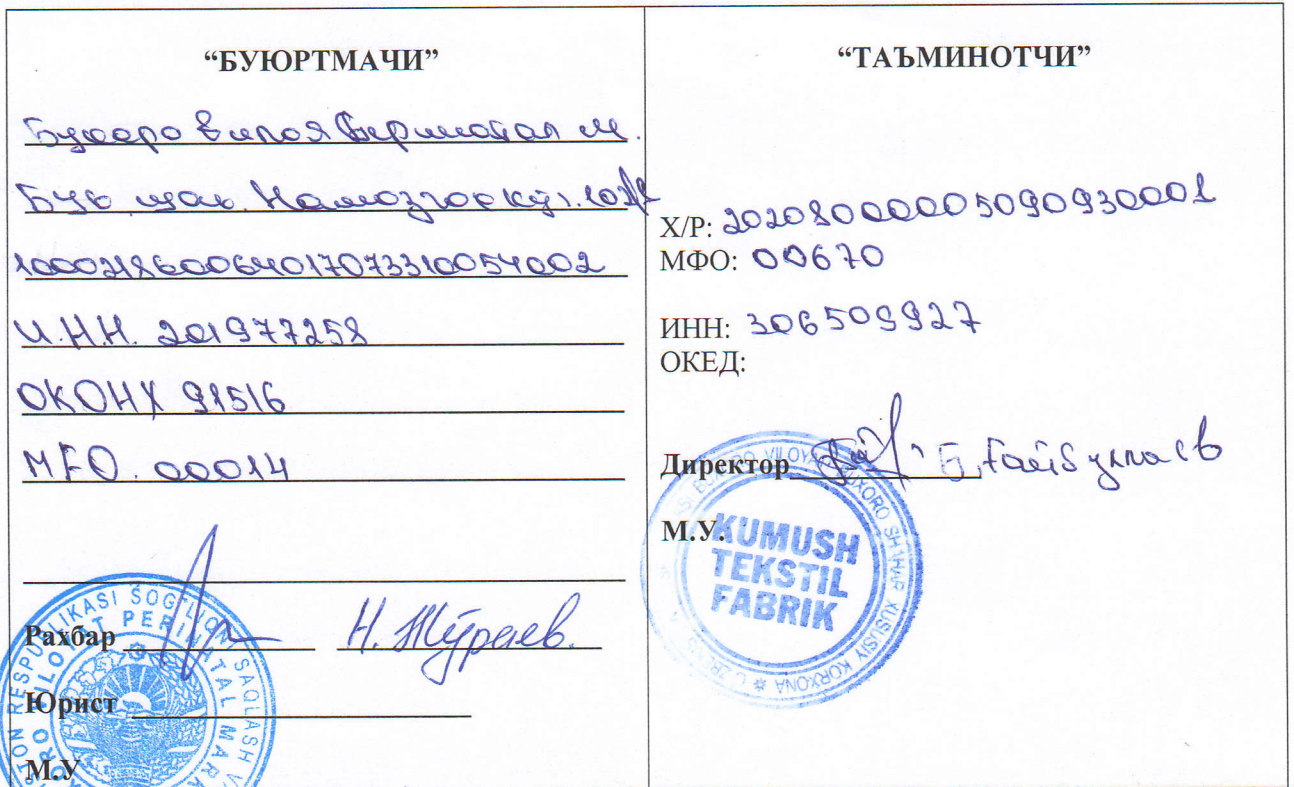 “БУЮРТМАЧИ”
Бухоро вилоя Перинатал м.
Бух. шах. Намозгох кўч.
100021860064017073310054002
И.Н.Н. 201977258
ОКОНХ 91516
MFO. 00014
Рахбар Н. Жўраев.
Юрист
М.У
“ТАЪМИНОТЧИ”
Х/Р: 20208000005090930001
МФО: 00670
ИНН: 306509927
ОКЕД:
Директор Б. Гайбуллаев
М.У.
KUMUSH
TEKSTIL
FABRIK
BUXORO SHAHAR XUSUSIY KORXONA
RESPUBLIKASI SOG'LIQNI SAQLASH V
PERINATAL MARK